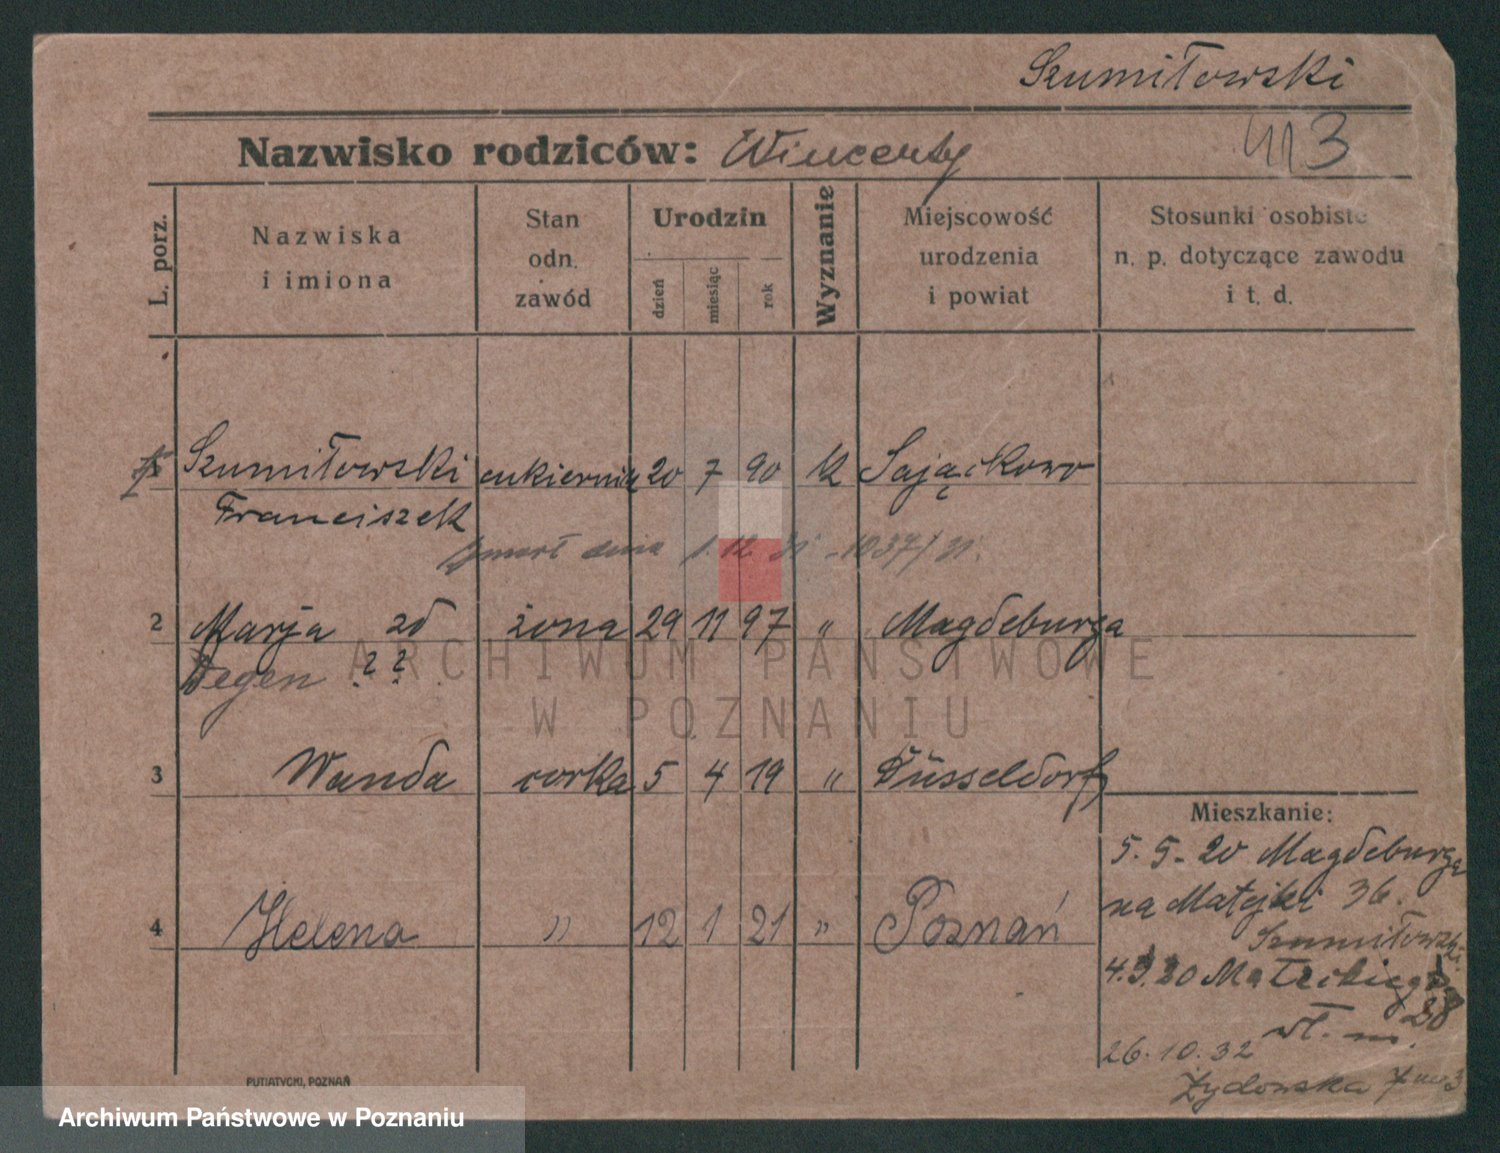 Szumiłowski
Nazwisko rodziców: Wincenty
3
L. porz.
Nazwiska
i imiona
Stan
odn.
zawód
Urodzin
dzień
miesiąc
rok
Wyznanie
Miejscowość
urodzenia
i powiat
Stosunki osobiste
n. p. dotyczące zawodu
i t. d.
Szumiłowski cukiernik 20 7 90 k
Franciszek
zmarł dnia 1. 12. 31 - 1037/31.
2 Marja zd żona 29 11 97 „ Magdeburga
Degen ? ?
3 Wanda corka 5 4 19 „ Düsseldorf
Mieszkanie:
5. 5 - 20 Magdeburga
na Matejki 36.
Szumiłowski
4 Helena „ 12 1 21 „ Poznań
20 Małeckiego
38
wł. m.
26. 10. 32
Żydowska 7 m 3
PUTIATYCKI, POZNAŃ
ARCHIWUM PAŃSTWOWE
W POZNANIU
Archiwum Państwowe w Poznaniu